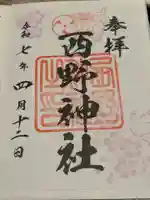 奉拝
西野神社
令和七年四月十二日